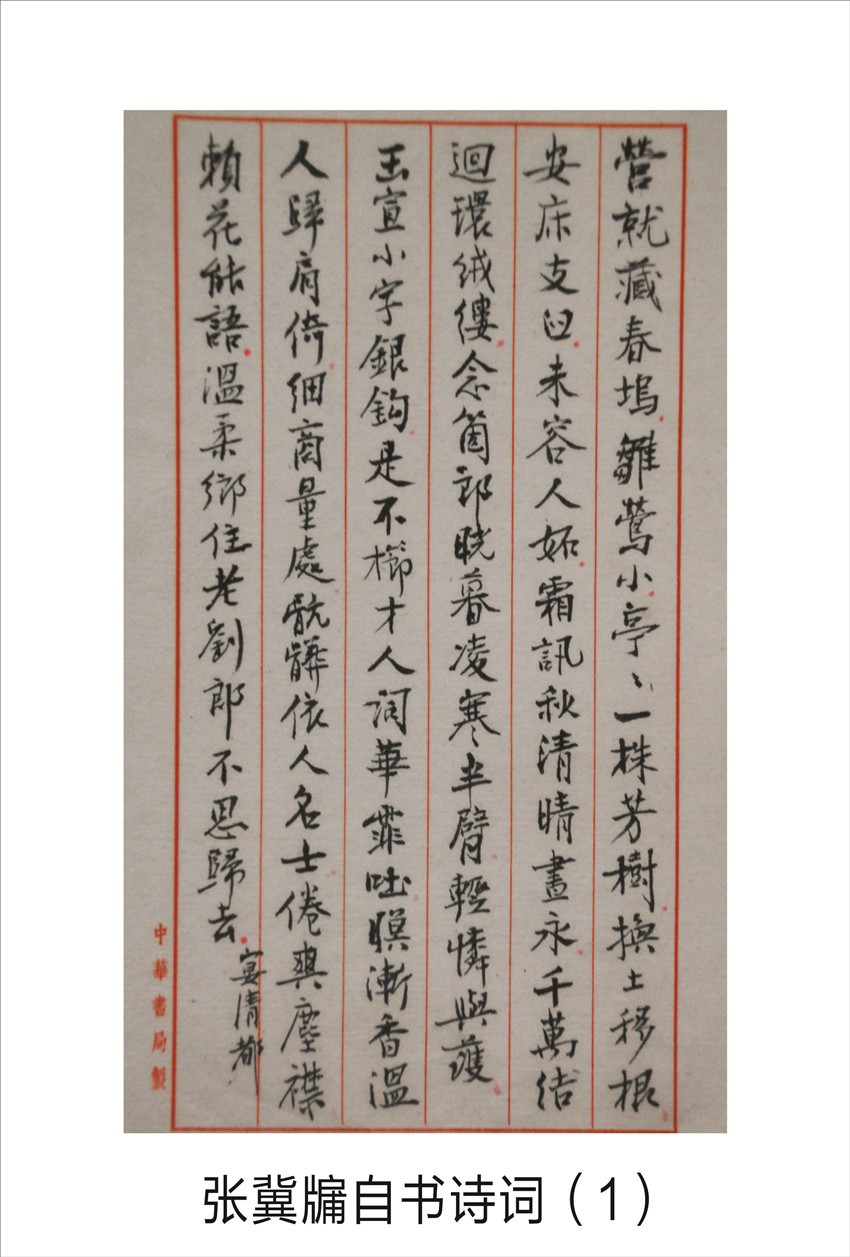 營就藏春塢雛鶯小亭〻一株芳樹換土移根
安床支臼未容人妬霜訊秋清晴晝永千萬結
迴環絨縷念箇郎晓暮凌寒半臂輕憐與護
玉宣小字銀鈎是不櫛才人词華霏吐暝漸香溫
人歸肩倚細商量處骯髒依人名士倦與塵襟
賴花能語溫柔鄉住老劉郎不思歸去
宴清都
中華書局製
张冀牖自书诗词（1）